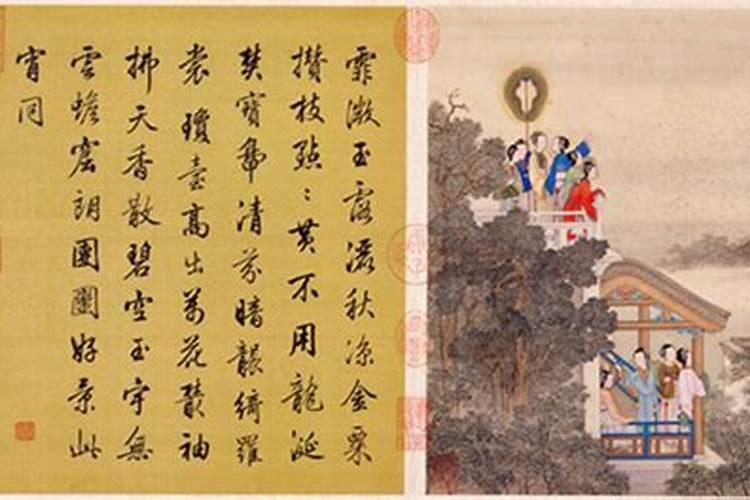 霏微玉露秋凉金粟
攢枝點〻黄不用龍涎
焚寶鼎清芬暗襲綺羅
裳瓊臺高出萬花叢袖
拂天香散碧空玉宇無
雲蟾窟朗團圞好景此
宵同